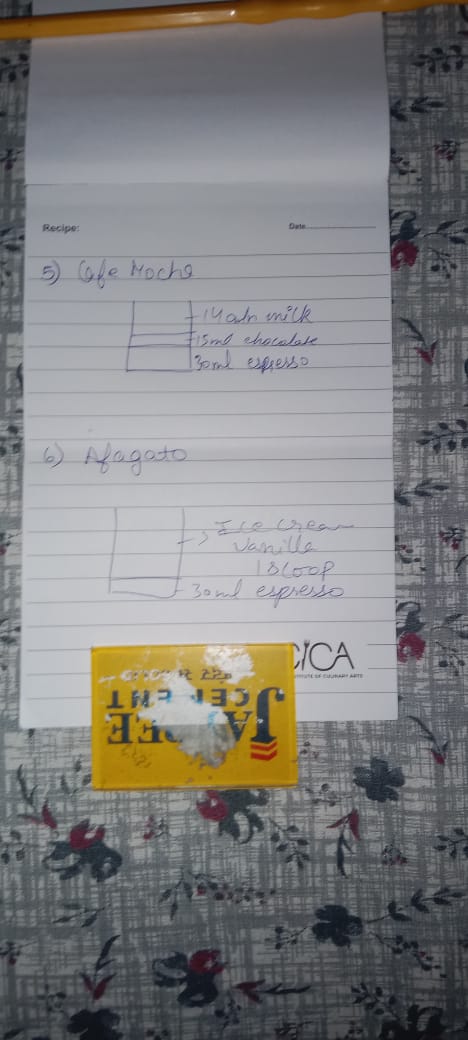 Recipe:
Date
5) Cafe Mocha
milk
15ml chocolate
30ml espresso
6) Afagato
Ice cream
Vanilla
1 scoop
30ml espresso
CICA
INSTITUTE OF CULINARY ARTS
JAYPEE
CEMENT